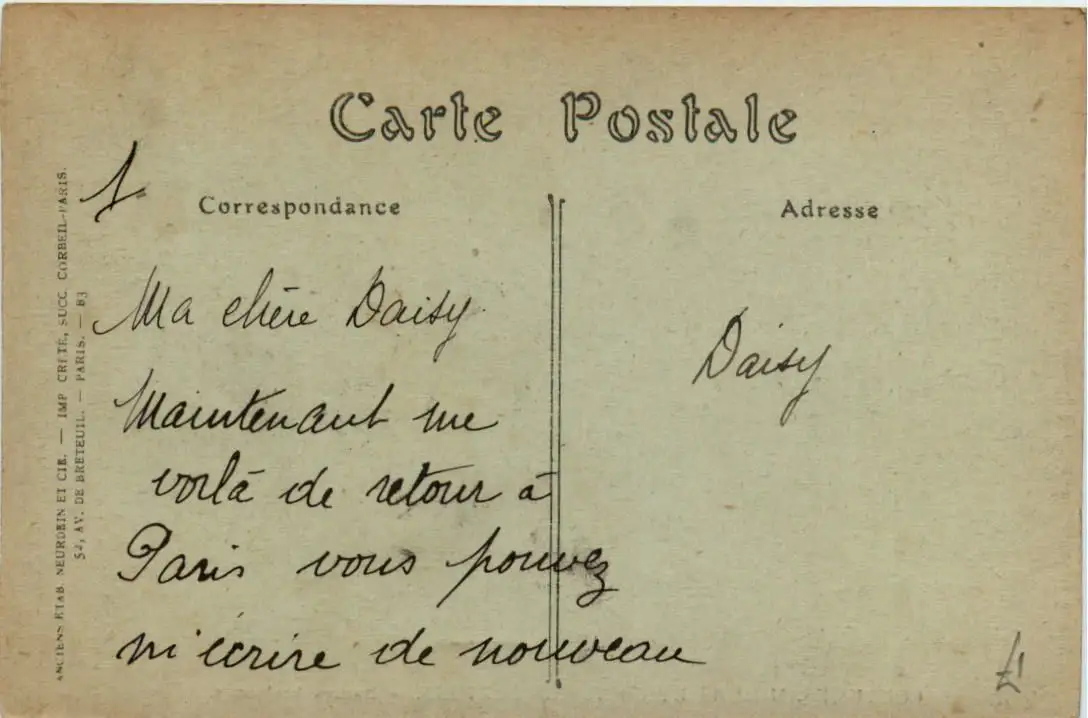 Carte Postale
1
Correspondance
Adresse
Ma chère Daisy
Maintenant me
voilà de retour à
Paris vous pouvez
m'écrire de nouveau
Daisy
£1
ANCIENS ETAB. NEURDEIN ET CIE. — IMP. CRÉTÉ, SUCC. CORBEIL-PARIS.
52, AV. DE BRETEUIL. — PARIS. — B3